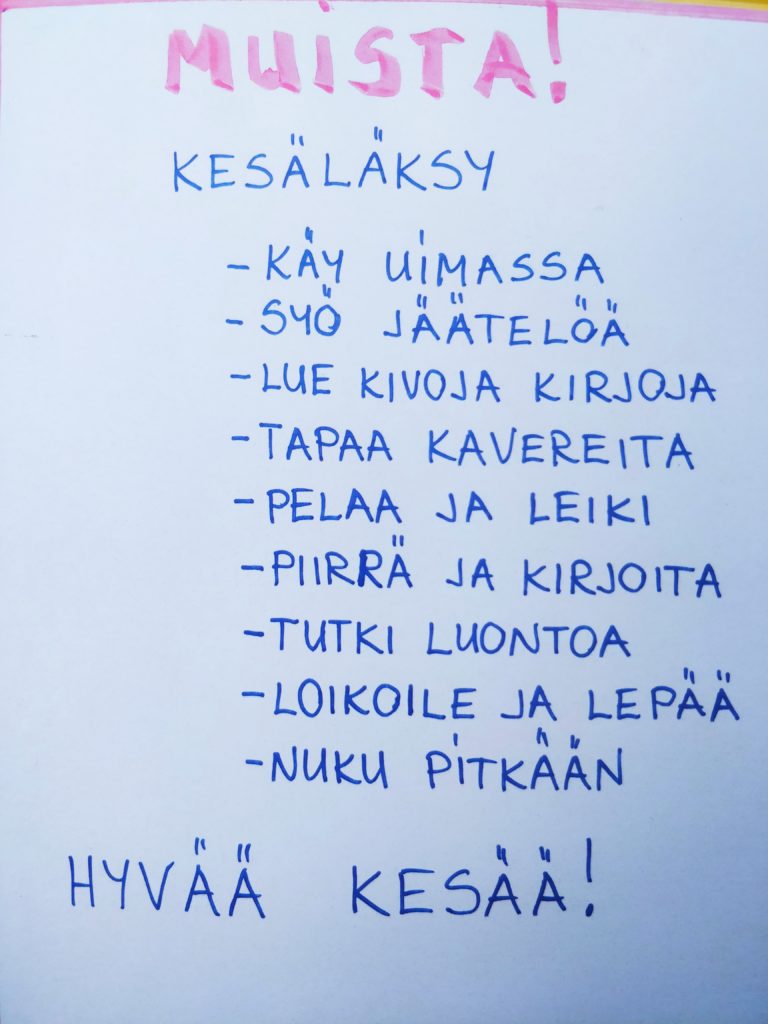 MUISTA!
KESÄLÄKSY
- KÄY UIMASSA
- SYÖ JÄÄTELÖÄ
- LUE KIVOJA KIRJOJA
- TAPAA KAVEREITA
- PELAA JA LEIKI
- PIIRRÄ JA KIRJOITA
- TUTKI LUONTOA
- LOIKOILE JA LEPÄÄ
- NUKU PITKÄÄN
HYVÄÄ KESÄÄ!